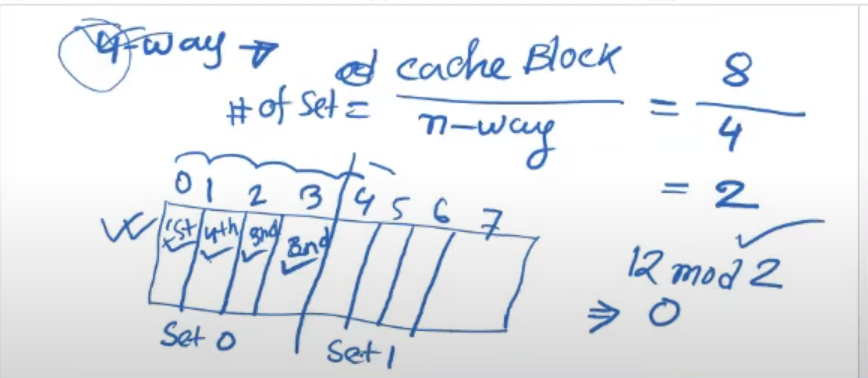 4-way →
# of Set = cache Block / n-way = 8 / 4
= 2
0 1 2 3 4 5 6 7
1st 4th 3nd 3nd
Set 0 Set 1
12 mod 2
⇒ 0